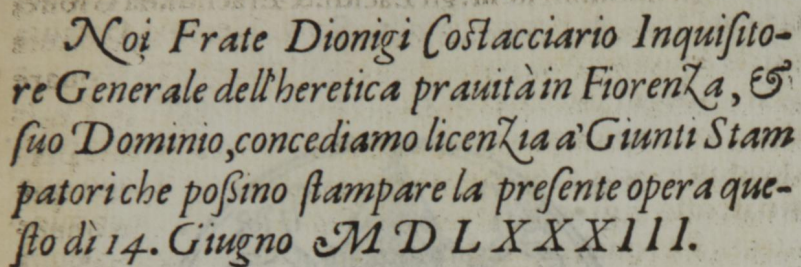 Noi Frate Dionigi Costacciario Inquiſito-
re Generale dell'heretica prauità in Fiorenza, &
ſuo Dominio, concediamo licenzia a' Giunti Stam
patori che poßino ſtampare la preſente opera que-
ſto dì 14. Giugno MDLXXXIII.